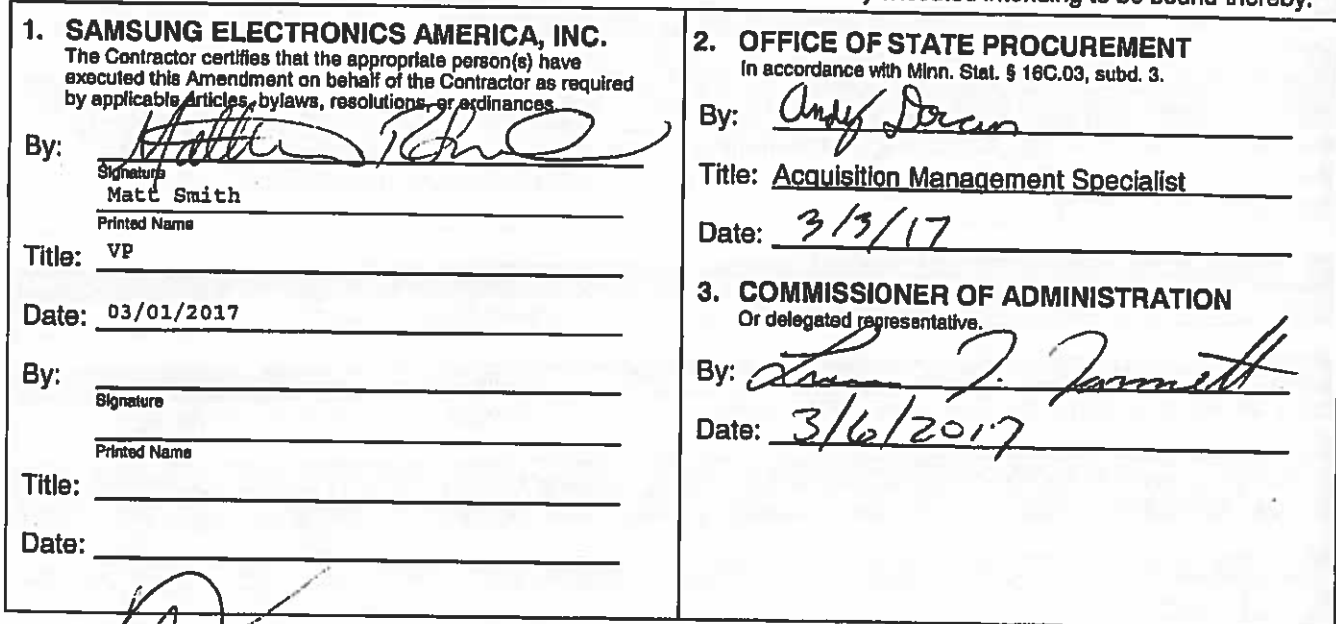 intending to be bound thereby.
1. SAMSUNG ELECTRONICS AMERICA, INC.
The Contractor certifies that the appropriate person(s) have
executed this Amendment on behalf of the Contractor as required
by applicable articles, bylaws, resolutions, or ordinances.
By:
Signature
Matt Smith
Printed Name
Title: VP
Date: 03/01/2017
By:
Signature
Printed Name
Title:
Date:
2. OFFICE OF STATE PROCUREMENT
In accordance with Minn. Stat. § 16C.03, subd. 3.
By: Andy Doran
Title: Acquisition Management Specialist
Date: 3/3/17
3. COMMISSIONER OF ADMINISTRATION
Or delegated representative.
By:
Date: 3/6/2017